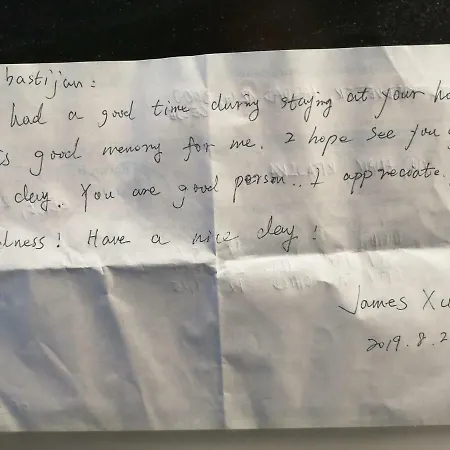 bastijan:
had a good time during staying at your ho
s good memory for me. I hope see you
day. You are good person.. I appreciate.
lness! Have a nice day!
James Xu
2019.8.2